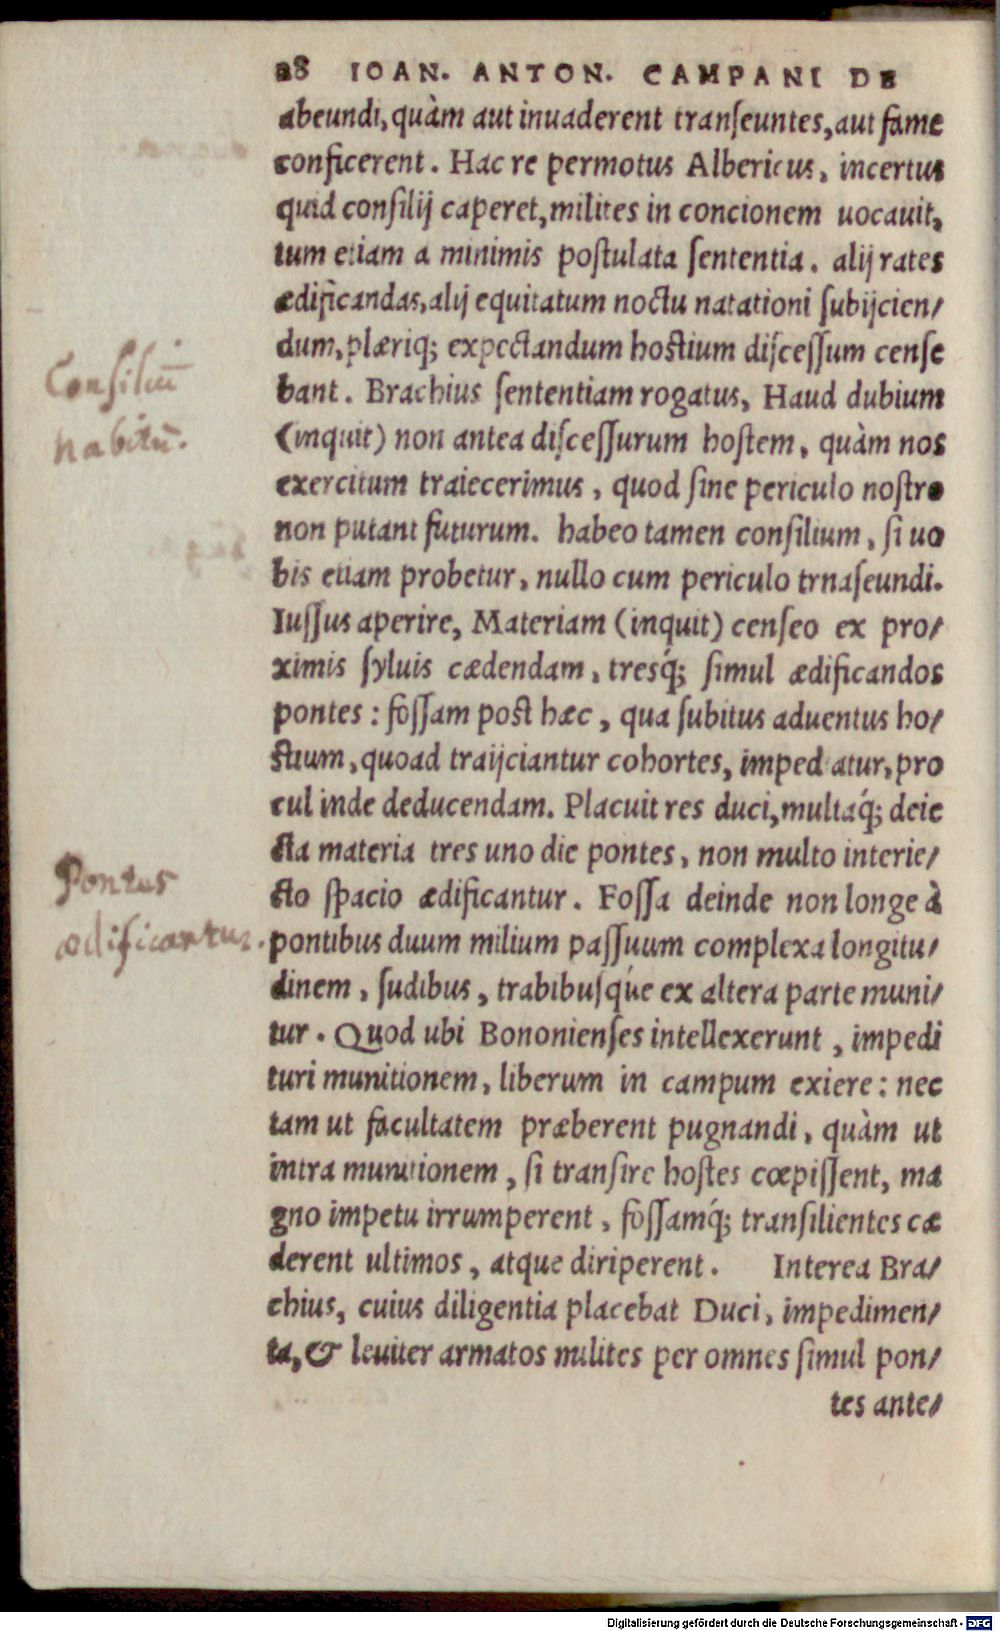 28 IOAN. ANTON. CAMPANI DE
abeundi, quàm aut inuaderent tranſeuntes, aut fame
conficerent. Hac re permotus Albericus, incertus
quid conſilij caperet, milites in concionem uocauit,
tum etiam a minimis poſtulata ſententia. alij rates
ædificandas, alij equitatum noctu natationi ſubijcien/
dum, plæriq; expectandum hoſtium diſceſſum cenſe
bant. Brachius ſententiam rogatus, Haud dubium
(inquit) non antea diſceſſurum hoſtem, quàm nos
exercitum traiecerimus, quod ſine periculo noſtro
non putant futurum. habeo tamen conſilium, ſi uo
bis etiam probetur, nullo cum periculo trnaſeundi.
Iuſſus aperire, Materiam (inquit) cenſeo ex pro/
ximis ſyluis cædendam, tresq́; ſimul ædificandos
pontes: foſſam poſt hæc, qua ſubitus aduentus ho/
ſtium, quoad traijciantur cohortes, impediatur, pro
cul inde deducendam. Placuit res duci, multaq́; deie
cta materia tres uno die pontes, non multo interie/
cto ſpacio ædificantur. Foſſa deinde non longe à
pontibus duum milium paſſuum complexa longitu/
dinem, ſudibus, trabibuſq́ue ex altera parte muni/
tur. Quod ubi Bononienſes intellexerunt, impedi
turi munitionem, liberum in campum exiere: nec
tam ut facultatem præberent pugnandi, quàm ut
intra munitionem, ſi tranſire hoſtes cœpiſſent, ma
gno impetu irrumperent, foſſamq́; tranſilientes cæ
derent ultimos, atque diriperent. Interea Bra/
chius, cuius diligentia placebat Duci, impedimen/
ta, & leuiter armatos milites per omnes ſimul pon/
tes ante/
Conſiliū
habitū.
Pontes
ædificantur.
Digitalisierung gefördert durch die Deutsche Forschungsgemeinschaft - DFG